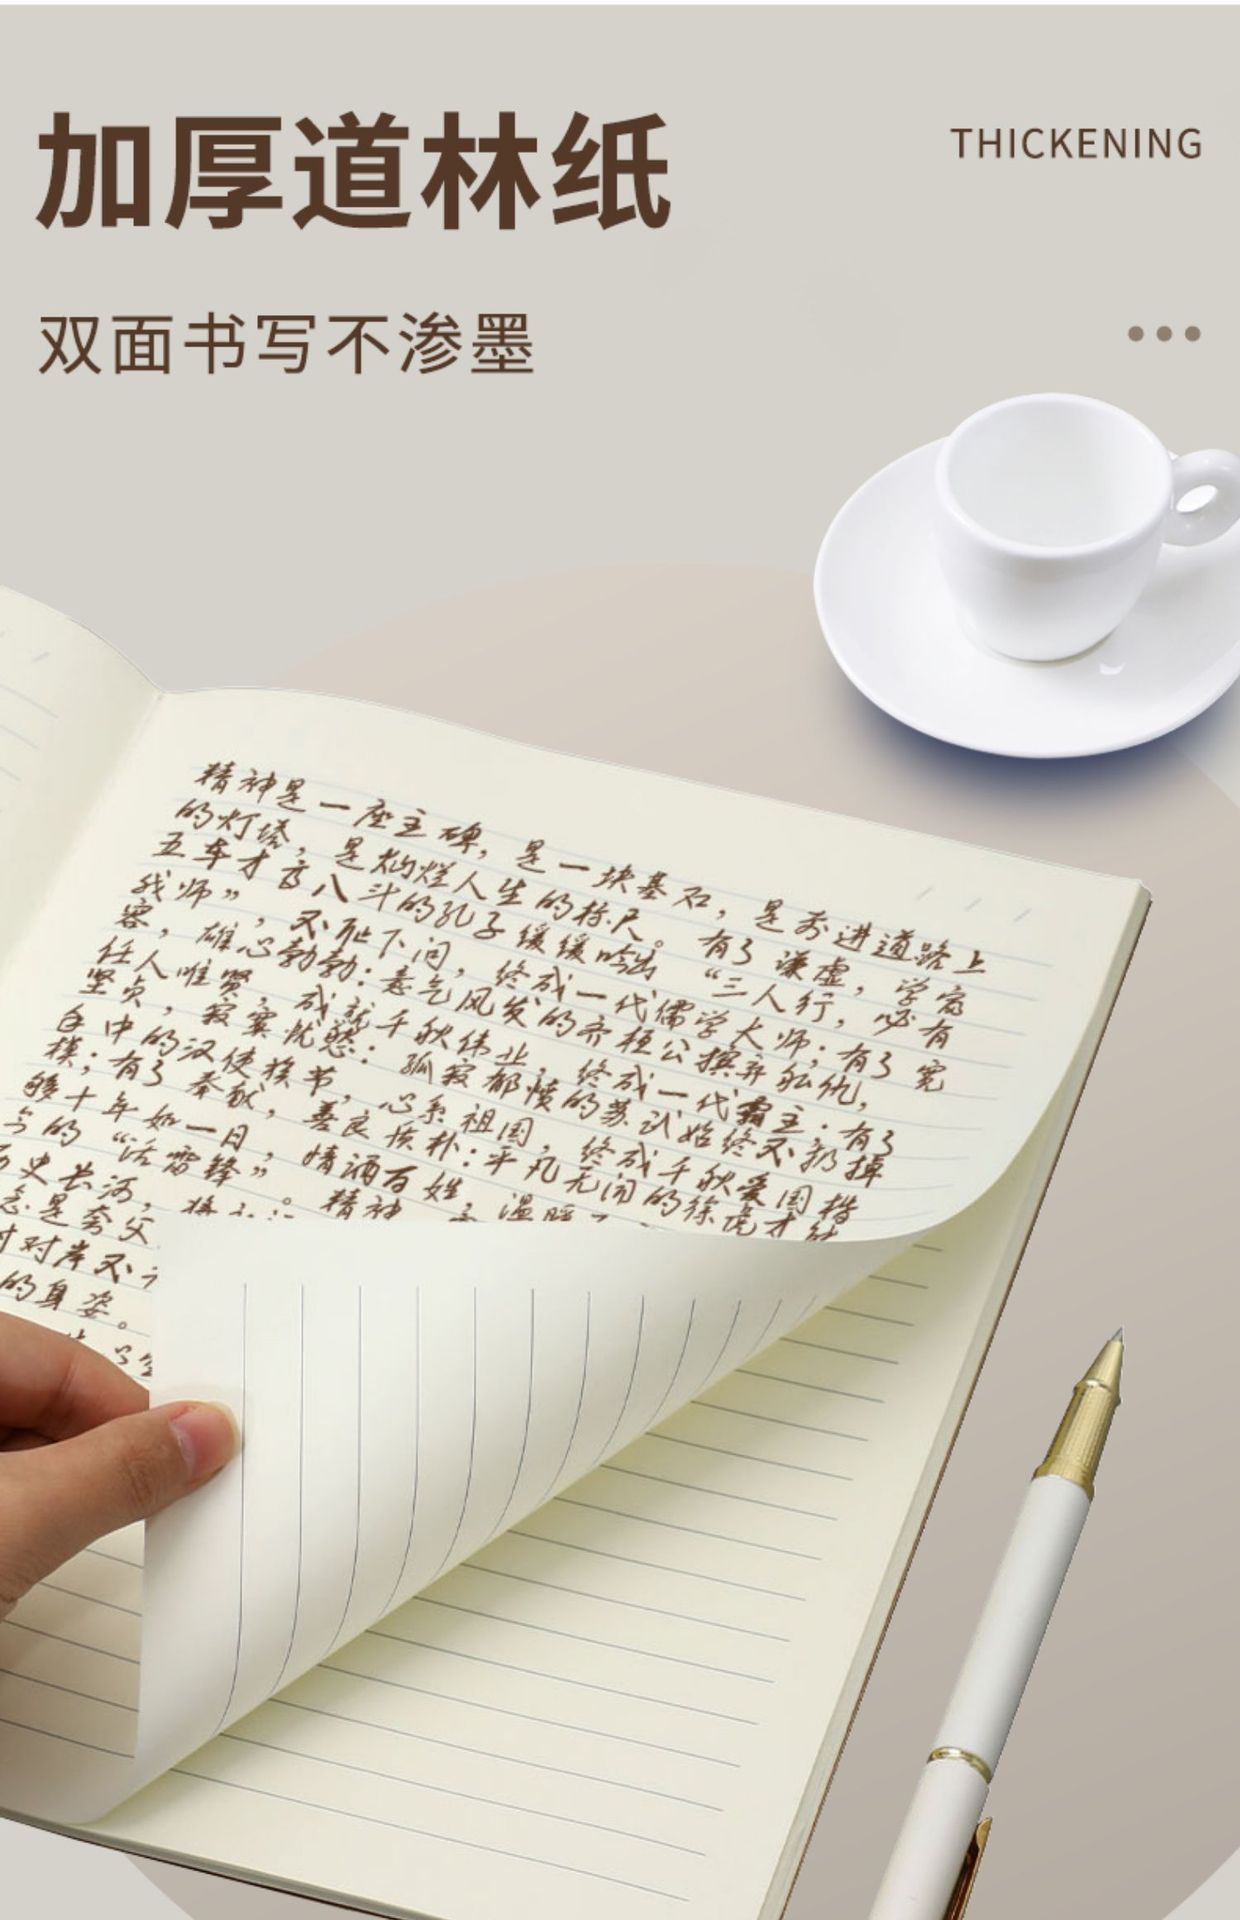 加厚道林纸
THICKENING
双面书写不渗墨
精神是一座主碑，是一块基石，是前进道路上
的灯塔，是灿烂人生的标尺。有了谦虚，学富
五车才高八斗的孔子缓缓吟出“三人行，必有
我师”，不耻下问，终成一代儒学大师；有了宽
容，雄心勃勃：意气风发的齐桓公摒弃私仇，
任人唯贤，成就千秋伟业，终成一代霸主．有了
坚贞，寂寞忧愁：孤寂都愤的苏武始终不扔掉
手中的汉使旄节，心系祖国，终成千秋爱国楷
模；有了奉献，善良质朴：平凡无闻的徐虎才能
够十年如一日，情洒百姓，温暖
今的“活雷锋”。精神
历史长河，
总是夸父
对岸又
的身姿。